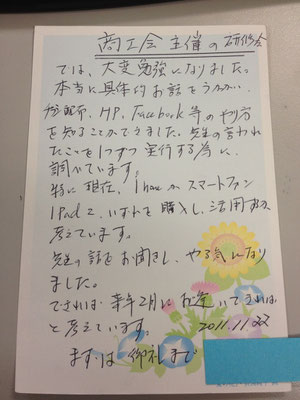 商工会主催の研修会
では、大変勉強になりました。
本当に具体的お話をうかがい、
HP、Facebook等のやり方
を知ることができました。先生の言われ
たことを1つずつ実行する為に、
調べています。
特に現在、Ihoneか スマートフォン
IPad2、いずれを購入し、活用するか
考えています。
先生の話をお聞きし、やる気になり
ました。
できれば 来年2月にお逢いできれば
と考えています。
2011.11.22
まずは御礼まで